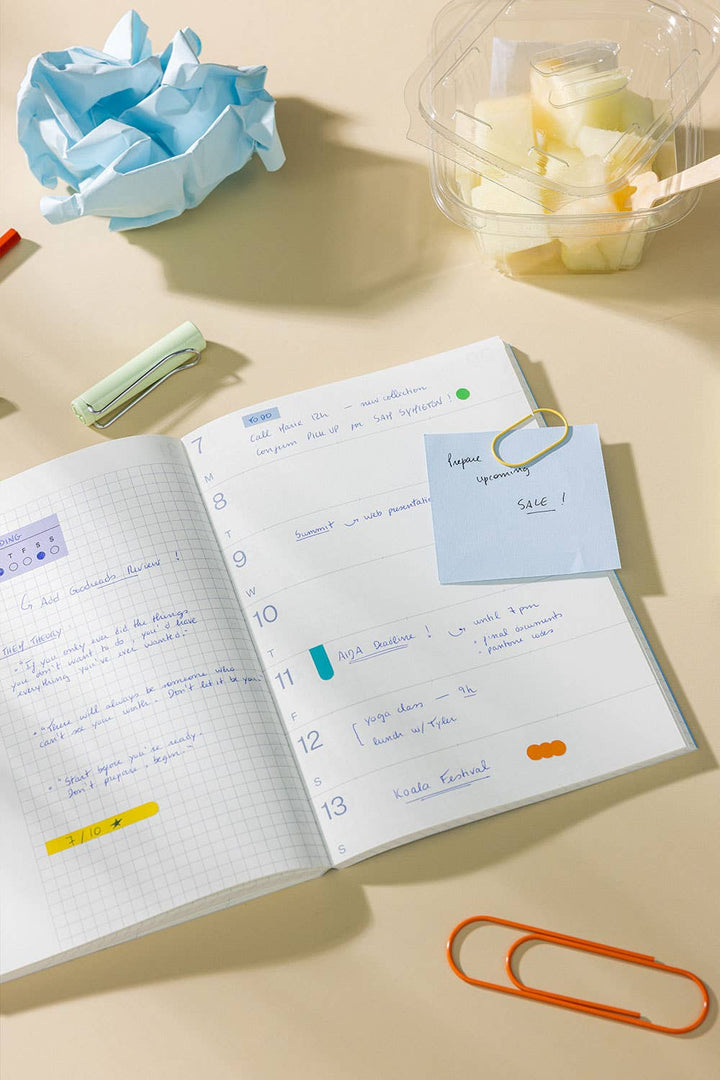 DING
T F S S
↳ Add Goodreads Review !
THEM THEORY
• "If you only ever did the things
you don't want to do, you'd have
everything you've ever wanted."
• "There will always be someone who
can't see your worth. Don't let it be you."
• "Start before you're ready.
Don't prepare, begin."
7/10 ★
7
M
TO DO
Call Marie 12h — new collection
Confirm PICK UP for SAM SYMIGTON !
8
T
Summit → web presentatio
9
W
10
T
11
F
AIDA Deadline ! → until 7 pm
: final documents
: pantone codes
12
S
yoga class — 9h
lunch w/ Tyler
13
S
Koala Festival
Prepare
upcoming
SALE !